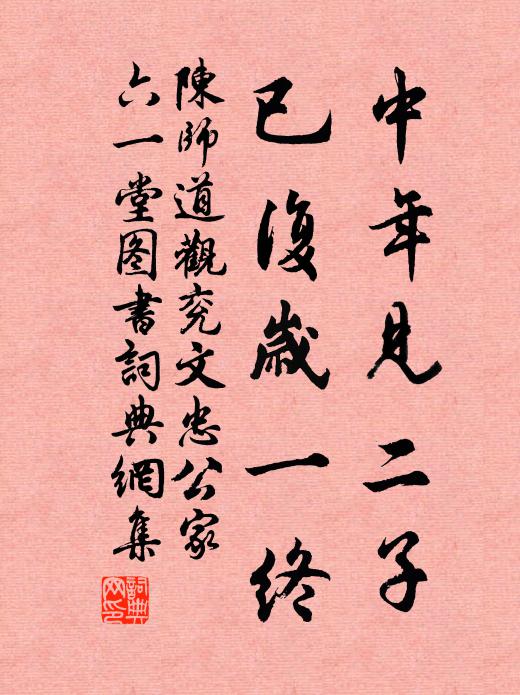 中年見二子
已復歲一終
陳師道觀兖文忠公家
六一堂图書詞典網集
詞典網印